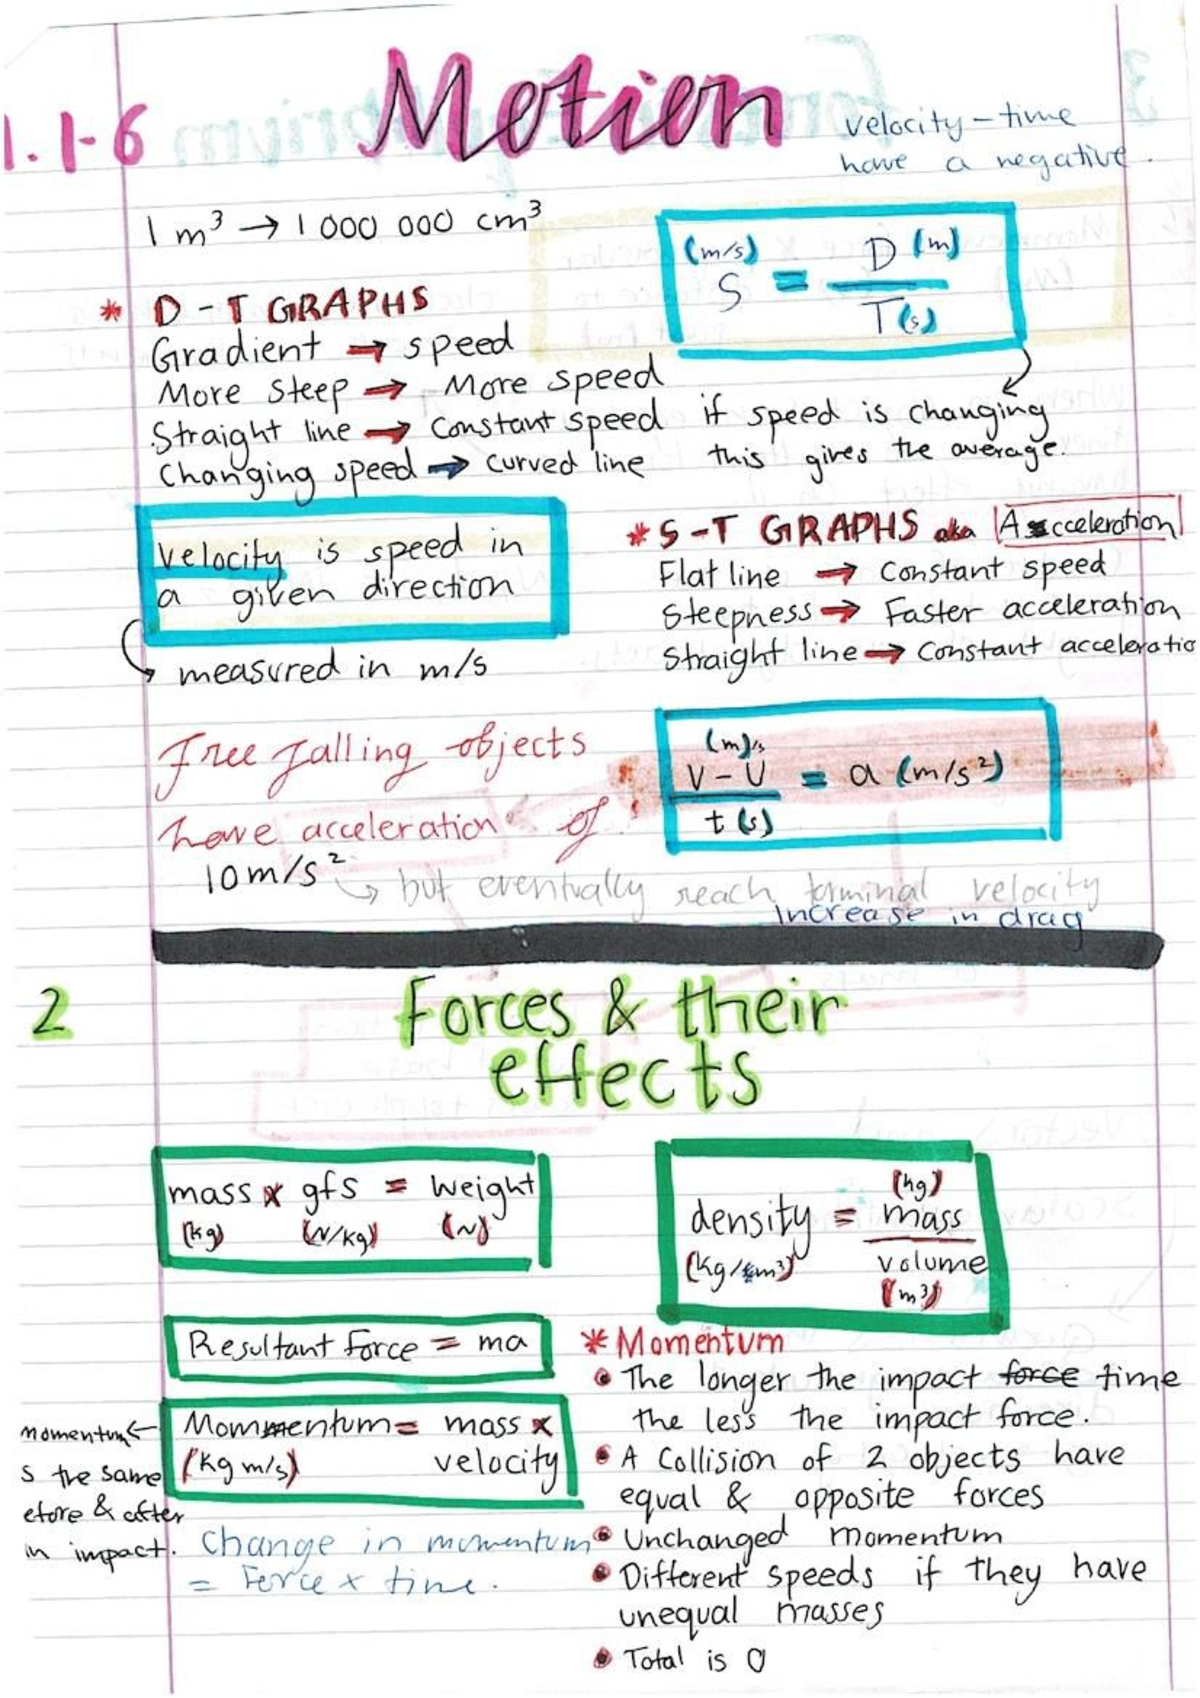 Motion
1.1-6
velocity-time
have a negative.
1 m³ → 1 000 000 cm³
(m/s) S = D (m) / T (s)
* D-T GRAPHS
Gradient → speed
More Steep → More speed
Straight line → Constant speed
Changing speed → curved line
if speed is changing
this gives the average.
Velocity is speed in
a given direction
measured in m/s
* S-T GRAPHS aka Acceleration
Flat line → Constant speed
Steepness → Faster acceleration
Straight line → Constant acceleratio
Free falling objects
have acceleration of
10m/s²
→ but eventually reach terminal velocity
Increase in drag
(m)/s
V-U = a (m/s²)
t (s)
2
Forces & their
effects
mass x gfs = Weight
(kg) (N/kg) (N)
(kg)
density = mass
(kg/m³) volume
(m³)
Resultant Force = ma
Mommentum = mass x
(kg m/s) velocity
momentum ←
s the same
efore & after
in impact.
Change in momentum
= Force x time.
* Momentum
• The longer the impact force time
the less the impact force.
• A Collision of 2 objects have
equal & opposite forces
• Unchanged momentum
• Different speeds if they have
unequal masses
• Total is 0